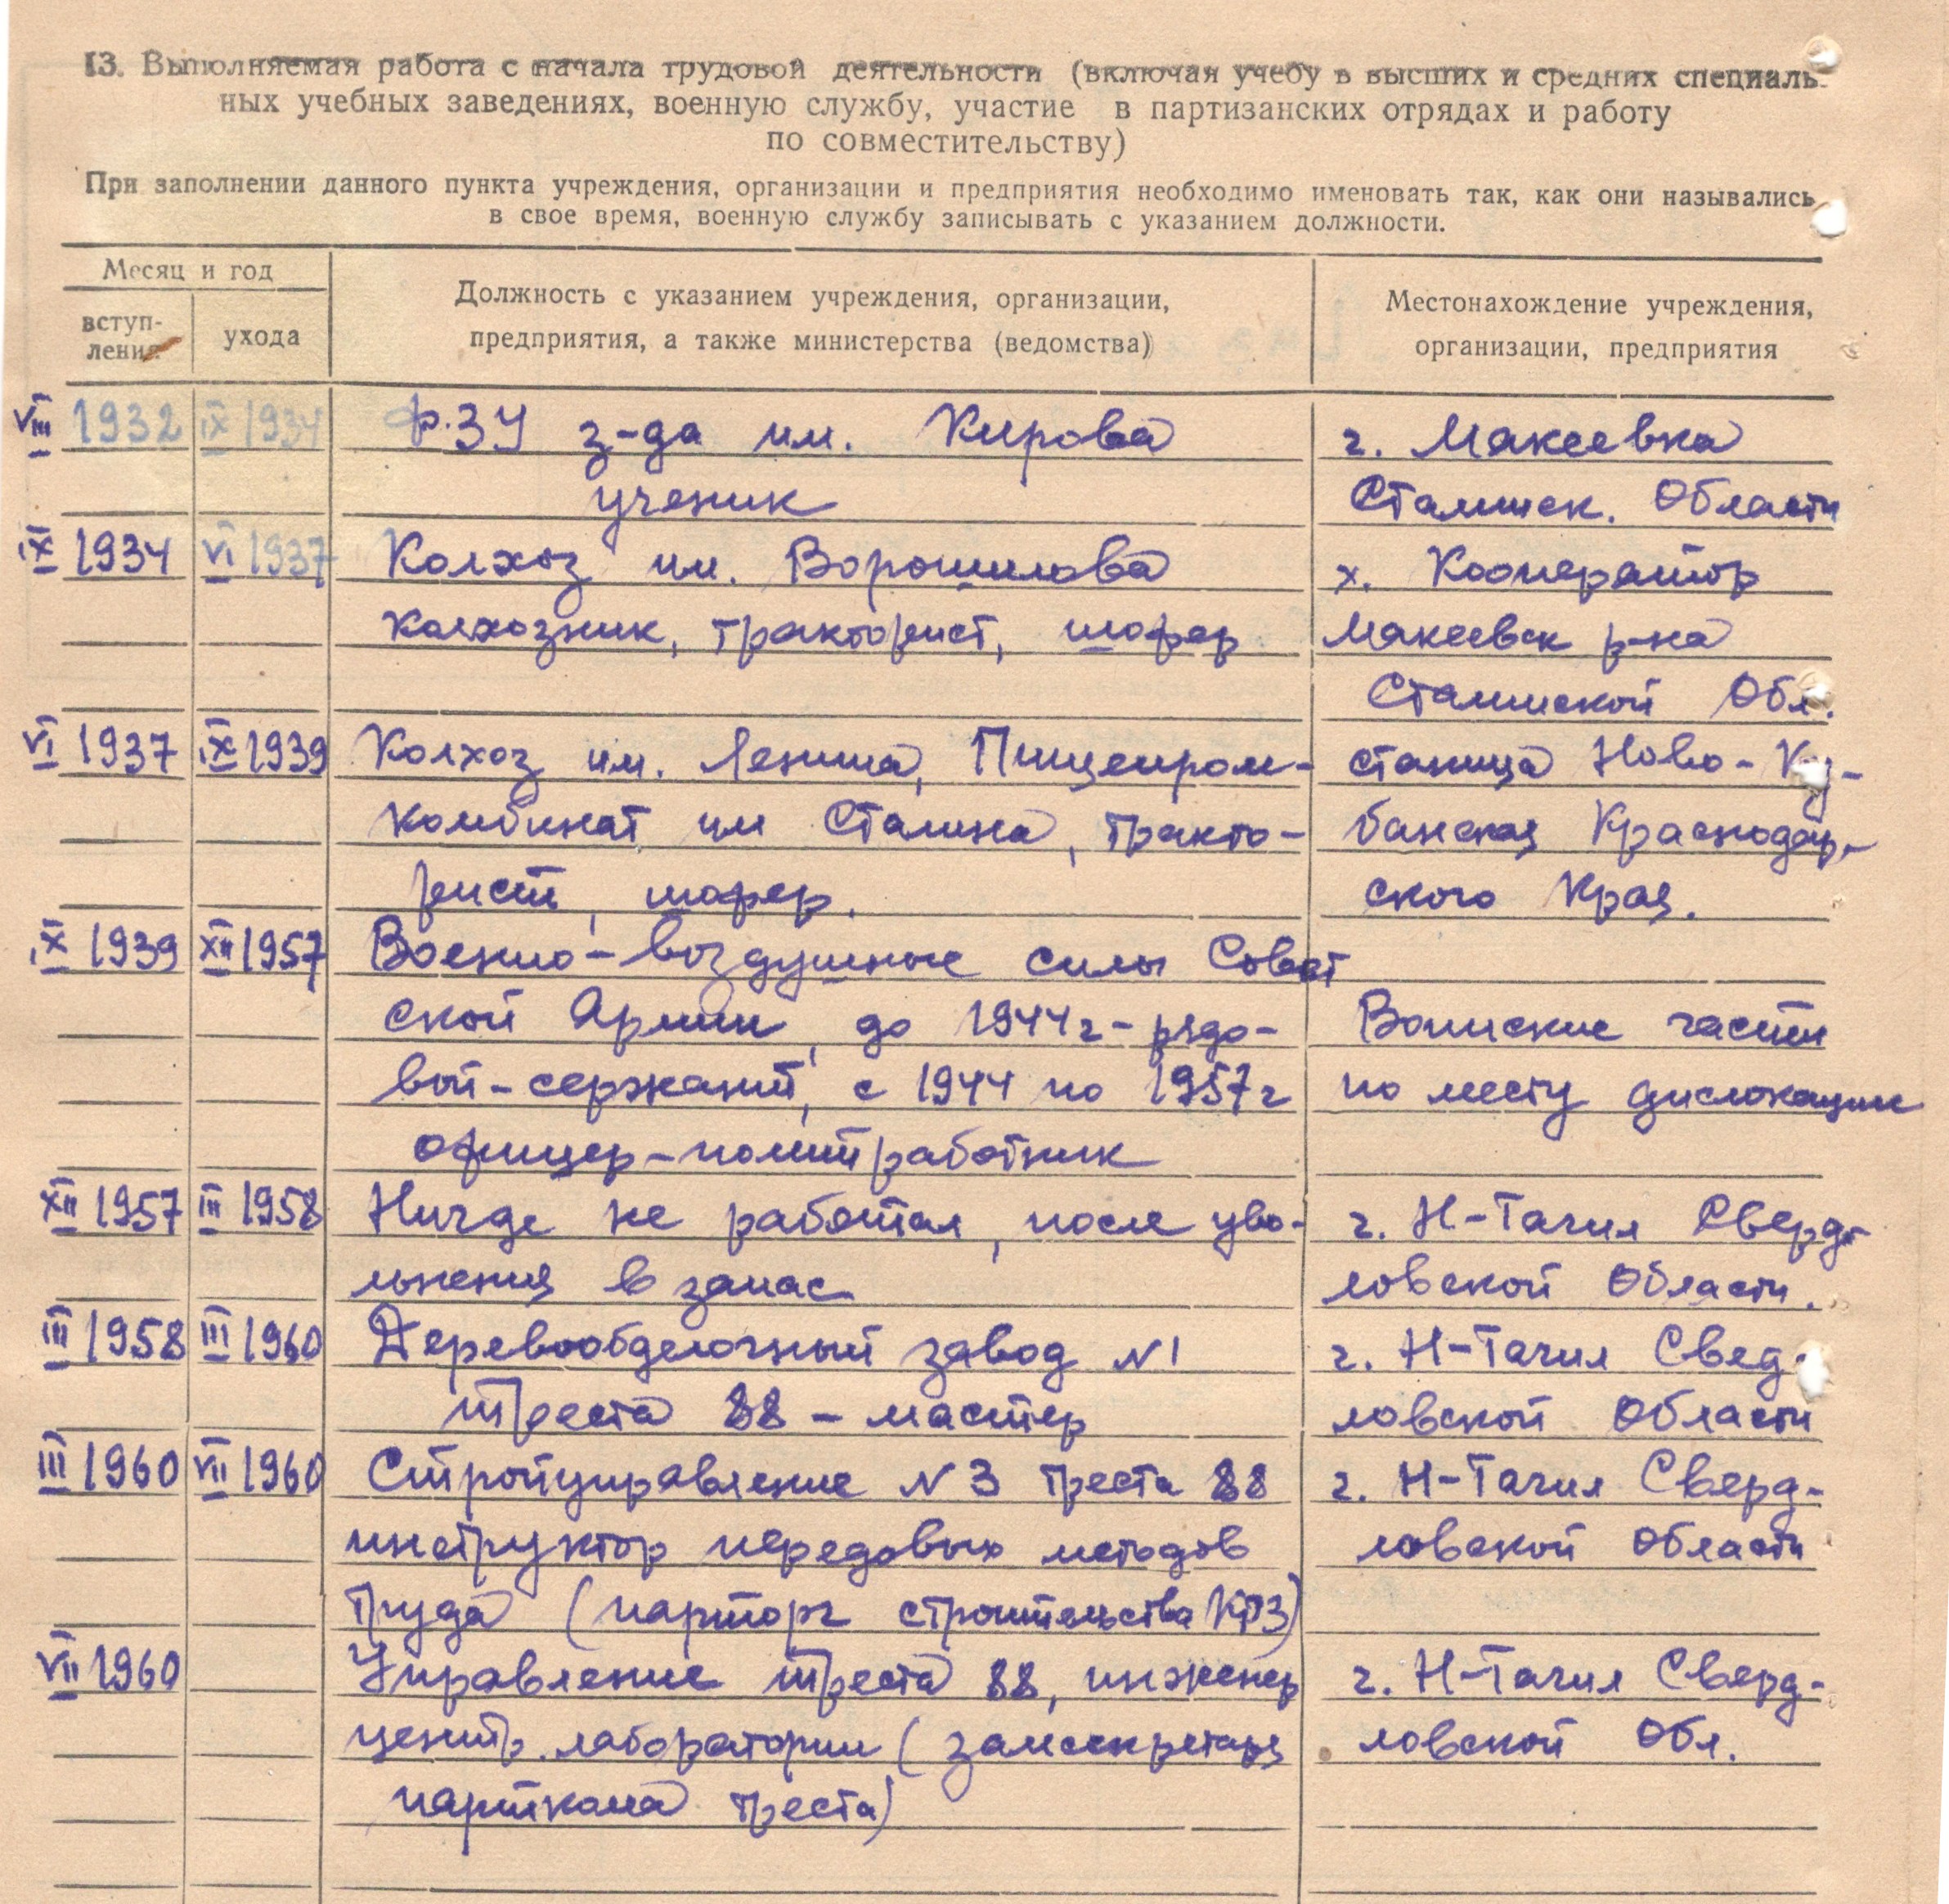 13. Выполняемая работа с начала трудовой деятельности (включая учебу в высших и средних специаль-
ных учебных заведениях, военную службу, участие в партизанских отрядах и работу
по совместительству)
При заполнении данного пункта учреждения, организации и предприятия необходимо именовать так, как они назывались
в свое время, военную службу записывать с указанием должности.
Месяц и год
вступ-
ления
ухода
Должность с указанием учреждения, организации,
предприятия, а также министерства (ведомства)
Местонахождение учреждения,
организации, предприятия
VIII 1932 IX 1934 Ф.ЗУ з-да им. Кирова г. Макеевка
ученик Сталинск. Области
IX 1934 VI 1937 Колхоз им. Ворошилова х. Кооператор
колхозник, тракторист, шофер Макеевск р-на
Сталинской Обл.
VI 1937 IX 1939 Колхоз им. Ленина, Пищепром- станица Ново-Ку-
комбинат им Сталина, тракто- банская Краснодар-
рист, шофер. ского Края.
IX 1939 XII 1957 Военно-воздушные силы Совет
ской Армии, до 1944г - рядо- Воинские части
вой-сержант, с 1944 по 1957г по месту дислокации
офицер-политработник
XII 1957 III 1958 Нигде не работал, после уво- г. Н-Тагил Сверд-
льнения в запас ловской Области.
III 1958 III 1960 Деревообделочный завод N1 г. Н-Тагил Свед-
треста 88 - мастер ловской Области
III 1960 VII 1960 Стройуправление N 3 треста 88 г. Н-Тагил Сверд-
инструктор передовых методов ловской области
труда (парторг строительства КПЗ)
VII 1960 Управление треста 88, инженер г. Н-Тагил Сверд-
центр. лаборатории (замсекретаря ловской Обл.
парткома треста)